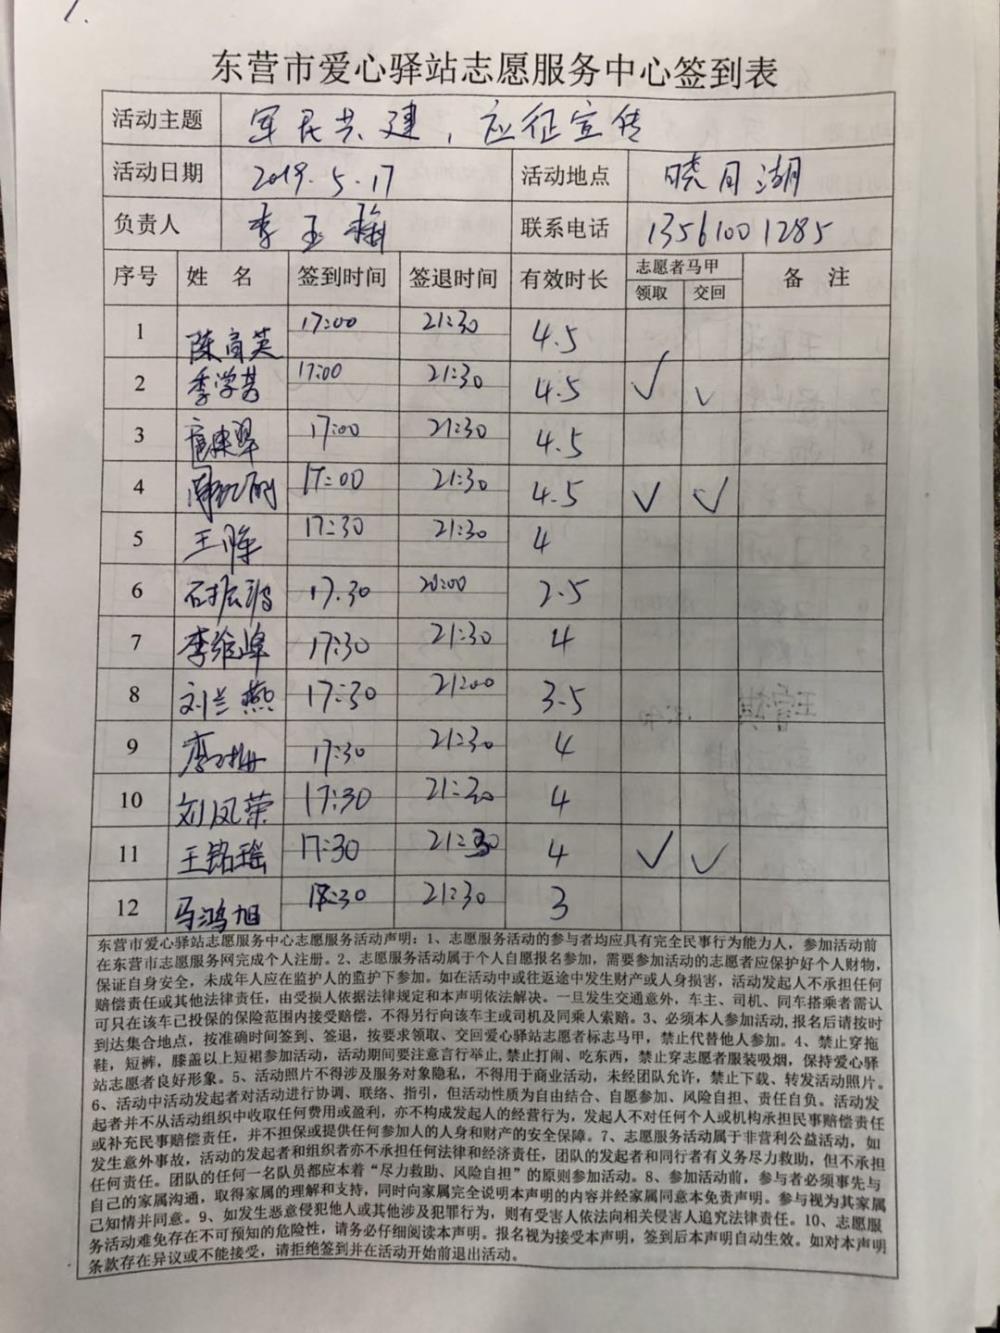 东营市爱心驿站志愿服务中心签到表
活动主题 军民共建，应征宣传
活动日期 2019.5.17 活动地点 晓月湖
负责人 李玉梅 联系电话 13561001285
序号 姓名 签到时间 签退时间 有效时长 志愿者马甲 备注
领取 交回
1 陈富英 17:00 21:30 4.5
2 季学芳 17:00 21:30 4.5 √ √
3 17:00 21:30 4.5
4 17:00 21:30 4.5 √ √
5 17:30 21:30 4
6 石振波 17.30 20:00 2.5
7 李维峰 17:30 21:30 4
8 刘兰燕 17:30 21:00 3.5
9 17:30 21:30 4
10 刘凤荣 17:30 21:30 4
11 王铭瑶 17:30 21:30 4 √ √
12 马鸿旭 18:30 21:30 3
东营市爱心驿站志愿服务中心志愿服务活动声明：1、志愿服务活动的参与者均应具有完全民事行为能力人，参加活动前
在东营市志愿服务网完成个人注册。2、志愿服务活动属于个人自愿报名参加，需要参加活动的志愿者应保护好个人财物，
保证自身安全，未成年人应在监护人的监护下参加。如在活动中或往返途中发生财产或人身损害，活动发起人不承担任何
赔偿责任或其他法律责任，由受损人依据法律规定和本声明依法解决。一旦发生交通意外，车主、司机、同车搭乘者需认
可只在该车已投保的保险范围内接受赔偿，不得另行向该车主或司机及同乘人索赔。3、必须本人参加活动,报名后请按时
到达集合地点，按准确时间签到、签退，按要求领取、交回爱心驿站志愿者标志马甲，禁止代替他人参加。4、禁止穿拖
鞋，短裤，膝盖以上短裙参加活动，活动期间要注意言行举止,禁止打闹、吃东西，禁止穿志愿者服装吸烟，保持爱心驿
站志愿者良好形象。5、活动照片不得涉及服务对象隐私，不得用于商业活动，未经团队允许，禁止下载、转发活动照片。
6、活动中活动发起者对活动进行协调、联络、指引，但活动性质为自由结合、自愿参加、风险自担、责任自负。活动发
起者并不从活动组织中收取任何费用或盈利，亦不构成发起人的经营行为，发起人不对任何个人或机构承担民事赔偿责任
或补充民事赔偿责任，并不担保或提供任何参加人的人身和财产的安全保障。7、志愿服务活动属于非营利公益活动，如
发生意外事故，活动的发起者和组织者亦不承担任何法律和经济责任，团队的发起者和同行者有义务尽力救助，但不承担
任何责任。团队的任何一名队员都应本着“尽力救助、风险自担”的原则参加活动。8、参加活动前，参与者必须事先与
自己的家属沟通，取得家属的理解和支持，同时向家属完全说明本声明的内容并经家属同意本免责声明。参与视为其家属
已知情并同意。9、如发生恶意侵犯他人或其他涉及犯罪行为，则有受害人依法向相关侵害人追究法律责任。10、志愿服
务活动难免存在不可预知的危险性，请务必仔细阅读本声明。报名视为接受本声明，签到后本声明自动生效。如对本声明
条款存在异议或不能接受，请拒绝签到并在活动开始前退出活动。